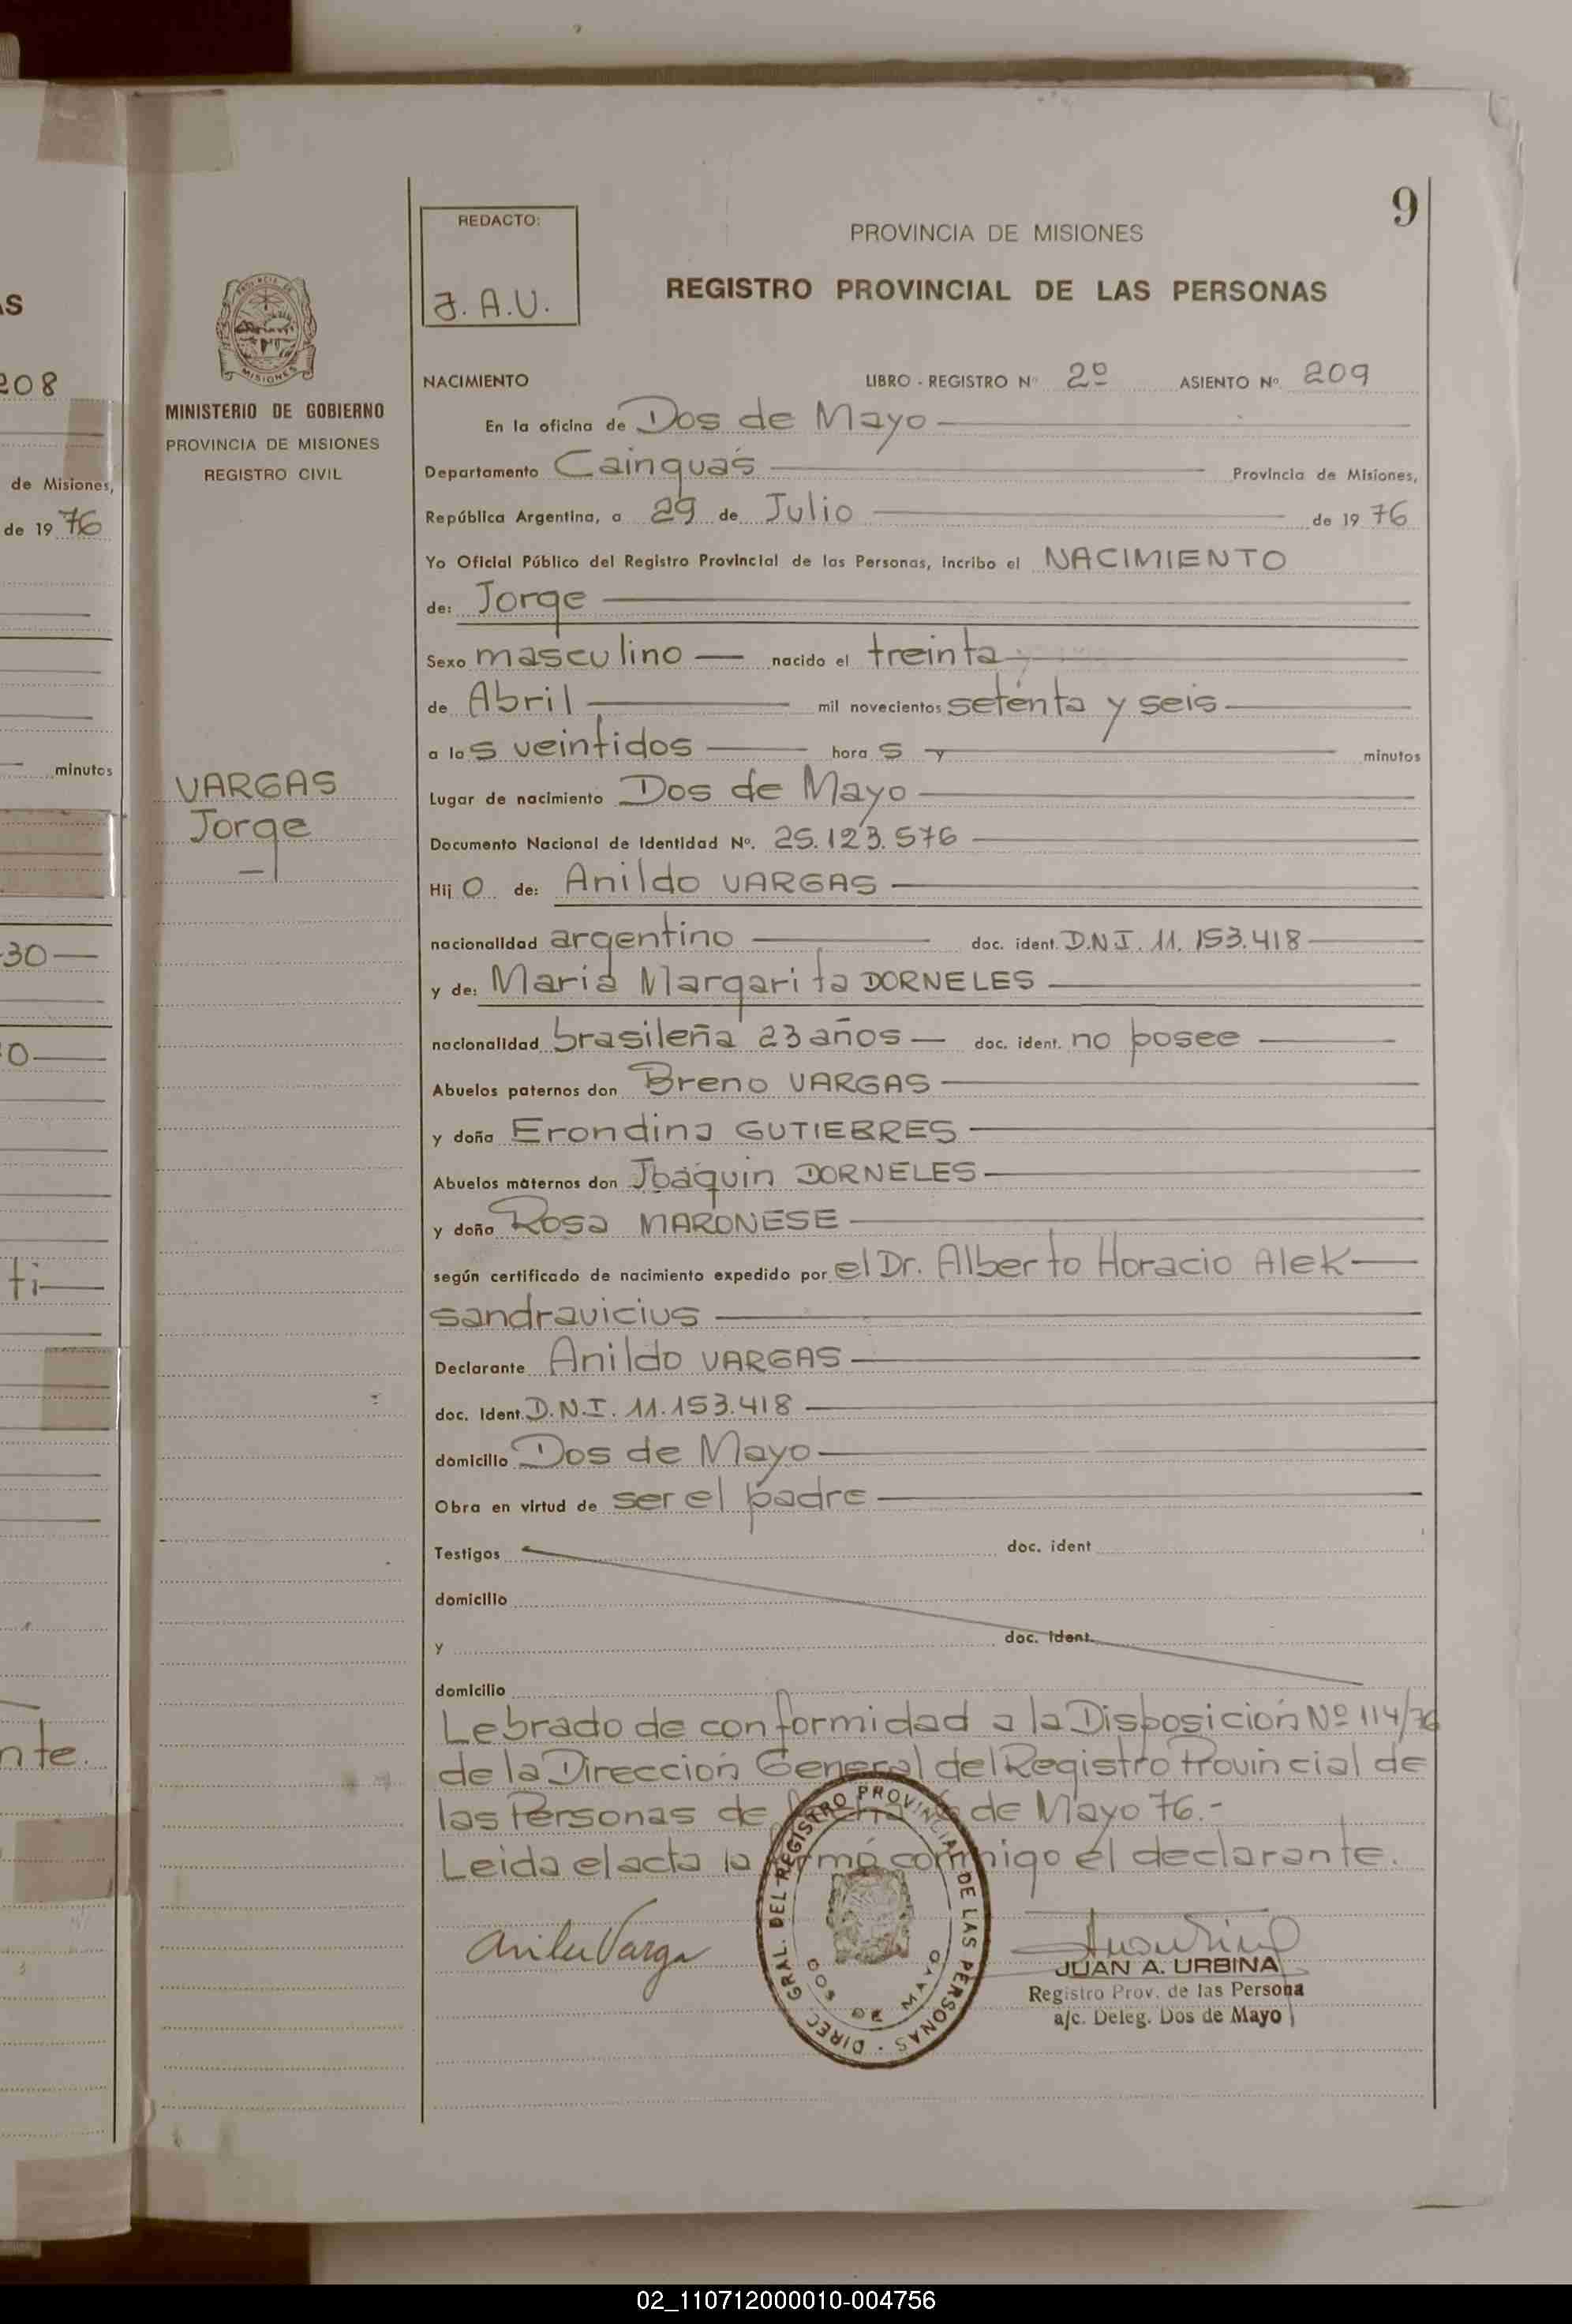 AS
208
de Misiones,
de 19 76
minutos
30
0
ti
nte.
MISIONES
MINISTERIO DE GOBIERNO
PROVINCIA DE MISIONES
REGISTRO CIVIL
VARGAS
Jorge
9
REDACTO:
J. A. U.
PROVINCIA DE MISIONES
REGISTRO PROVINCIAL DE LAS PERSONAS
NACIMIENTO LIBRO - REGISTRO Nº 2º ASIENTO Nº 209
En la oficina de Dos de Mayo
Departamento Cainguás Provincia de Misiones,
República Argentina, a 29 de Julio de 19 76
Yo Oficial Público del Registro Provincial de las Personas, inscribo el NACIMIENTO
de: Jorge
Sexo masculino nacido el treinta
de Abril mil novecientos setenta y seis
a las veintidos horas y minutos
Lugar de nacimiento Dos de Mayo
Documento Nacional de Identidad Nº. 25.123.576
Hijo de: Anildo VARGAS
nacionalidad argentino doc. ident. D.N.I. 11.153.418
y de: Maria Margarita DORNELES
nacionalidad brasileña 23 años doc. ident. no posee
Abuelos paternos don Breno VARGAS
y doña Erondina GUTIEBRES
Abuelos maternos don Joaquin DORNELES
y doña Rosa MARONESE
según certificado de nacimiento expedido por el Dr. Alberto Horacio Alek
sandravicius
Declarante Anildo VARGAS
doc. Ident. D.N.I. 11.153.418
domicilio Dos de Mayo
Obra en virtud de ser el padre
Testigos doc. ident
domicilio
y doc. Ident.
domicilio
Lebrado de conformidad a la Disposición Nº 114/76
de la Dirección General del Registro Provincial de
las Personas de fecha de Mayo 76.-
Leida el acta la firmó conmigo el declarante.
DIREC. GRAL. DEL REGISTRO PROVINCIAL DE LAS PERSONAS
DOS DE MAYO
JUAN A. URBINA
Registro Prov. de las Persona
a/c. Deleg. Dos de Mayo
02_110712000010-004756